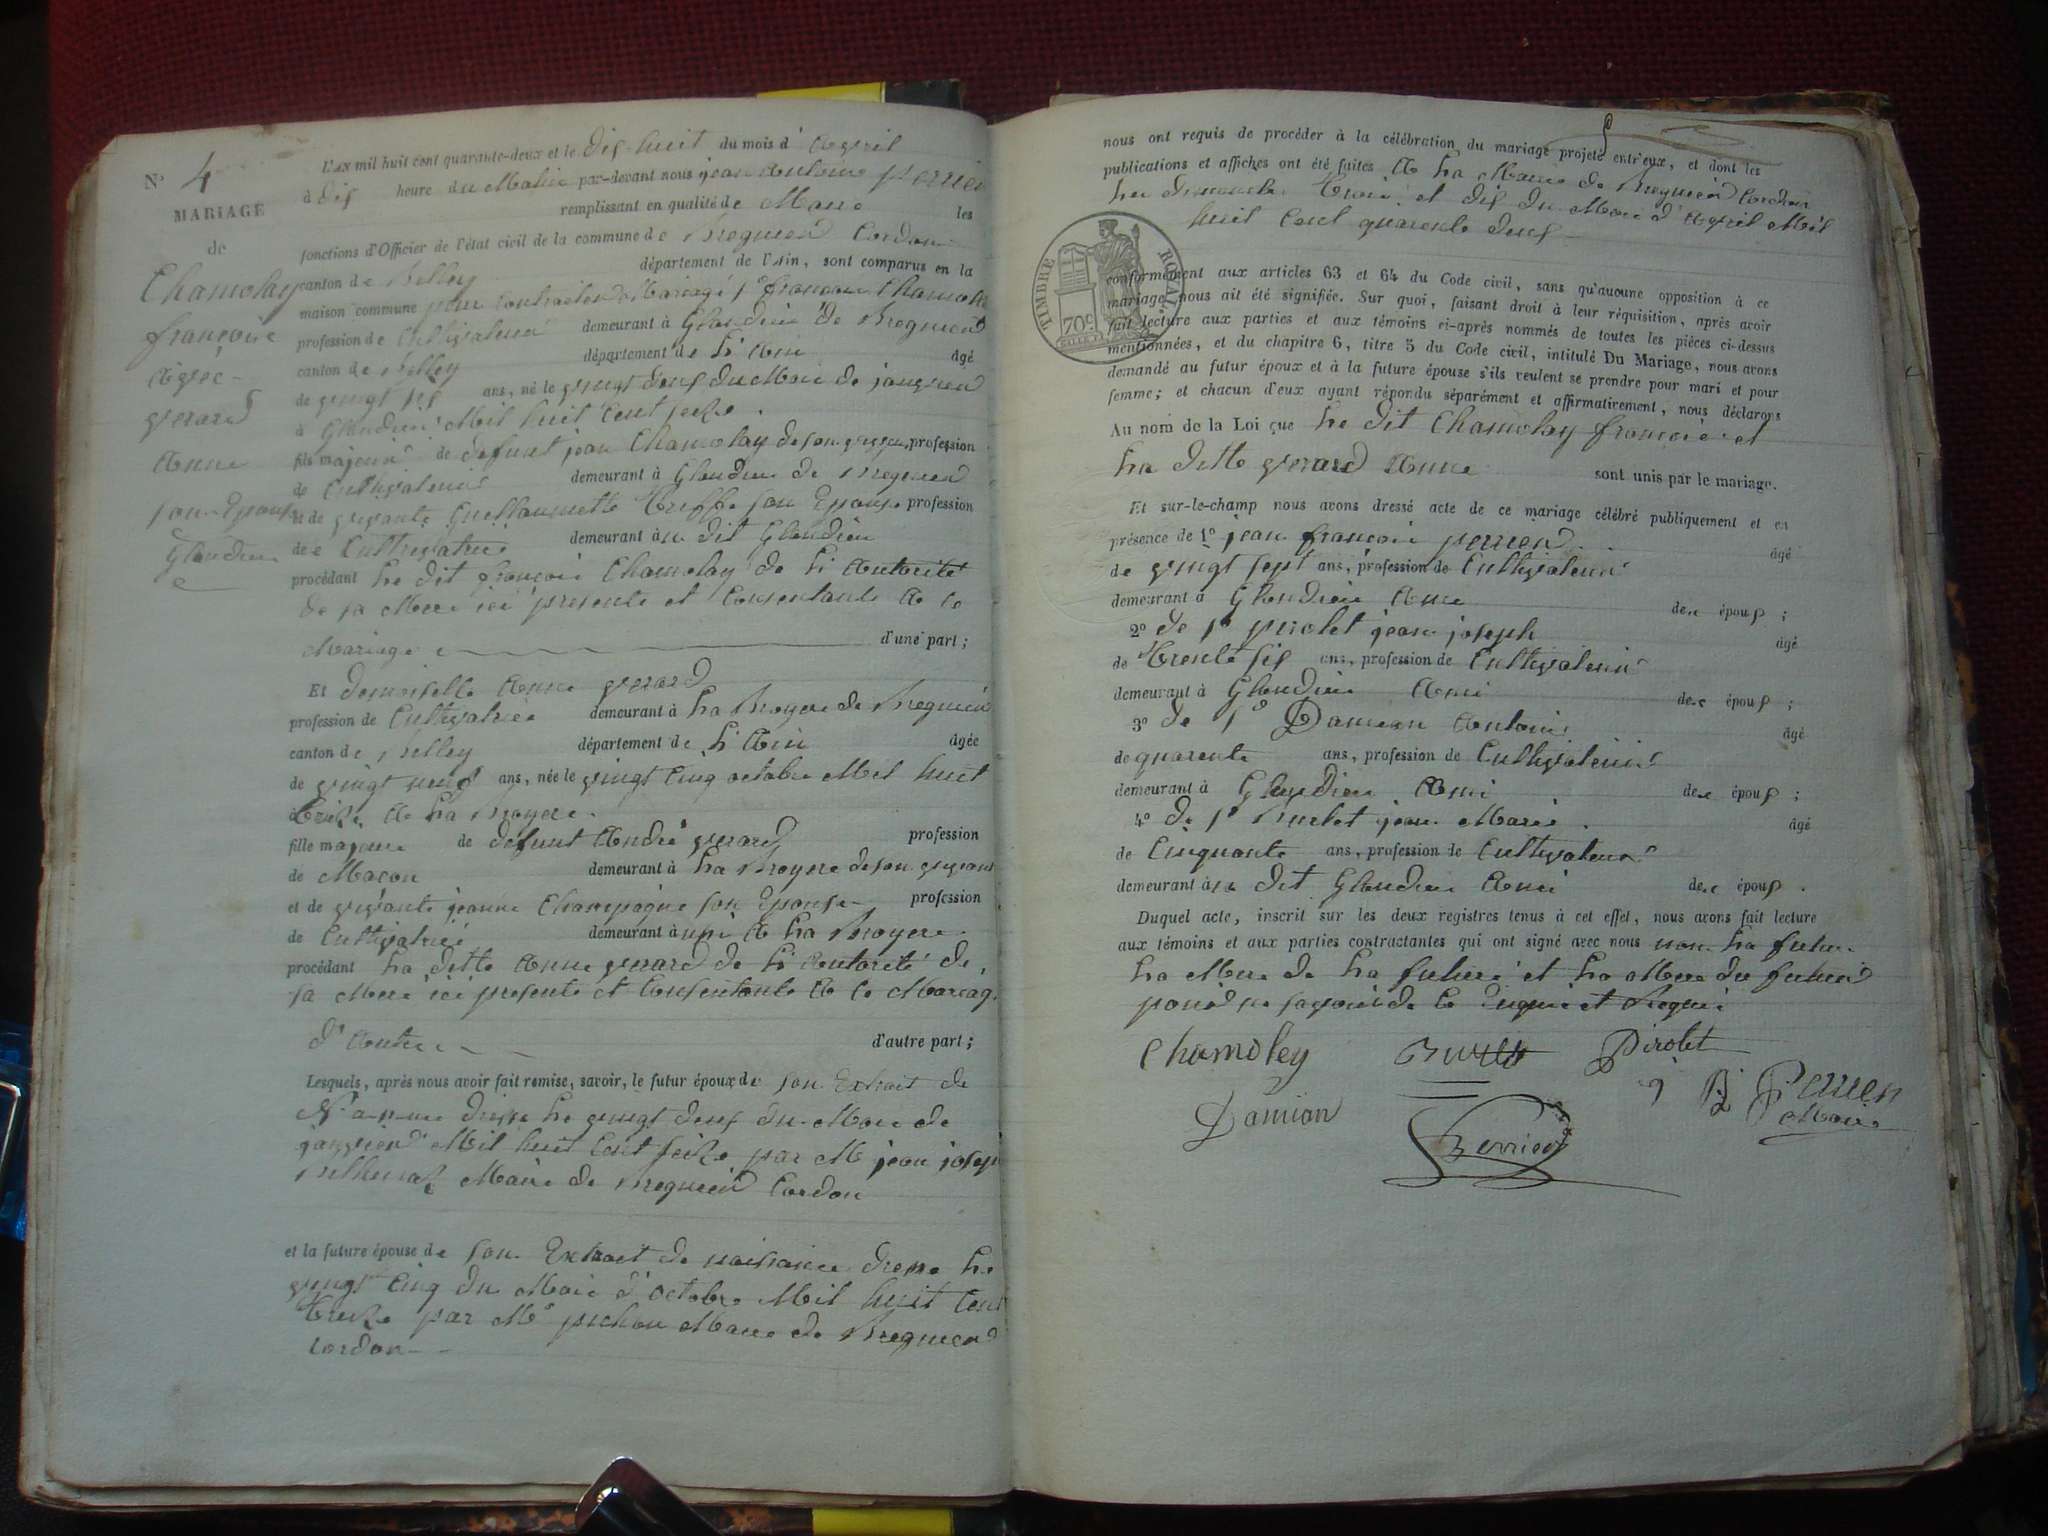 N° 4
MARIAGE
de
Chamolay
françois
Avec
verard
Anne
son Epouse
Glandieu
L'AN mil huit cent quarante-deux et le dix-huit du mois d' Avril
à dix heure du Matin par-devant nous jean Antoine perrier
remplissant en qualité de Maire les
fonctions d'Officier de l'état civil de la commune de Bregnier Cordon
canton de Belley département de l'Ain, sont comparus en la
maison commune pour contracter Mariage françois Chamolay
profession de Cultivateur demeurant à Glandieu de Bregnier
canton de Belley département de L'Ain âgé
de vingt six ans, né le vingt deux du Mois de janvier
à Glandieu Mil huit Cent seize.
fils majeur de defunt jean Chamolay de son vivant profession
de Cultivateur demeurant à Glandieu de Bregnier
et de vivante Guillaumette Treffe son Epouse profession
de Cultivatrice demeurant au dit Glandieu
procédant Le dit françois Chamolay de L'Autorité
de sa Mere ici presente et Consentante A ce
Mariage d'une part;
Et demoiselle Anne verard
profession de Cultivatrice demeurant à La Broyere de Bregnier
canton de Belley département de L'Ain âgée
de vingt neuf ans, née le vingt Cinq octobre Mil huit
Treize A La Broyere.
fille majeure de defunt André verard profession
de Macon demeurant à La Broyere de son vivant
et de vivante jeanne Champagne son Epouse profession
de Cultivatrice demeurant à A La Broyere.
procédant La ditte Anne verard de L'Autorité de
sa Mere ici presente et Consentante A ce Mariage
d'Autre d'autre part;
Lesquels, après nous avoir fait remise, savoir, le futur époux de son Extrait de
Naissance dressé Le vingt deux du Mois de
janvier Mil huit Cent seize par Mr jean joseph
Maire de Bregnier Cordon
et la future épouse de son Extrait de naissance dressé Le
vingt Cinq du Mois d'octobre Mil huit Cent
Treize par Mr pichon Maire de Bregnier
Cordon
nous ont requis de procéder à la célébration du mariage projeté entr'eux, et dont les
publications et affiches ont été faites A La Mairie de Bregnier Cordon
Les dimanches Trois et dix du Mois d'Avril Mil
huit Cent quarante deux
TIMBRE ROYAL
70c
conformément aux articles 63 et 64 du Code civil, sans qu'aucune opposition à ce
mariage nous ait été signifiée. Sur quoi, faisant droit à leur réquisition, après avoir
fait lecture aux parties et aux témoins ci-après nommés de toutes les pièces ci-dessus
mentionnées, et du chapitre 6, titre 5 du Code civil, intitulé Du Mariage, nous avons
demandé au futur époux et à la future épouse s'ils veulent se prendre pour mari et pour
femme; et chacun d'eux ayant répondu séparément et affirmativement, nous déclarons
Au nom de la Loi que Le dit Chamolay françois et
La ditte verard Anne sont unis par le mariage.
Et sur-le-champ nous avons dressé acte de ce mariage célébré publiquement et en
présence de 1° jean françois perrier âgé
de vingt sept ans, profession de Cultivateur
demeurant à Glandieu Ami des époux;
2° de sr pirolet jean joseph âgé
de Trente six ans, profession de Cultivateur
demeurant à Glandieu Ami des époux;
3° de sr Damian Antoine âgé
de quarente ans, profession de Cultivateur
demeurant à Glandieu Ami des époux;
4° de sr Burlet jean Marie âgé
de Cinquante ans, profession de Cultivateur
demeurant au dit Glandieu Ami des époux.
Duquel acte, inscrit sur les deux registres tenus à cet effet, nous avons fait lecture
aux témoins et aux parties contractantes qui ont signé avec nous non La future
La Mere de La future et La Mere du futur
pour ne savoir de ce Enquis et Requis
Chamoley Burlet Pirolet
Damian Perrier
Perrier
Maire